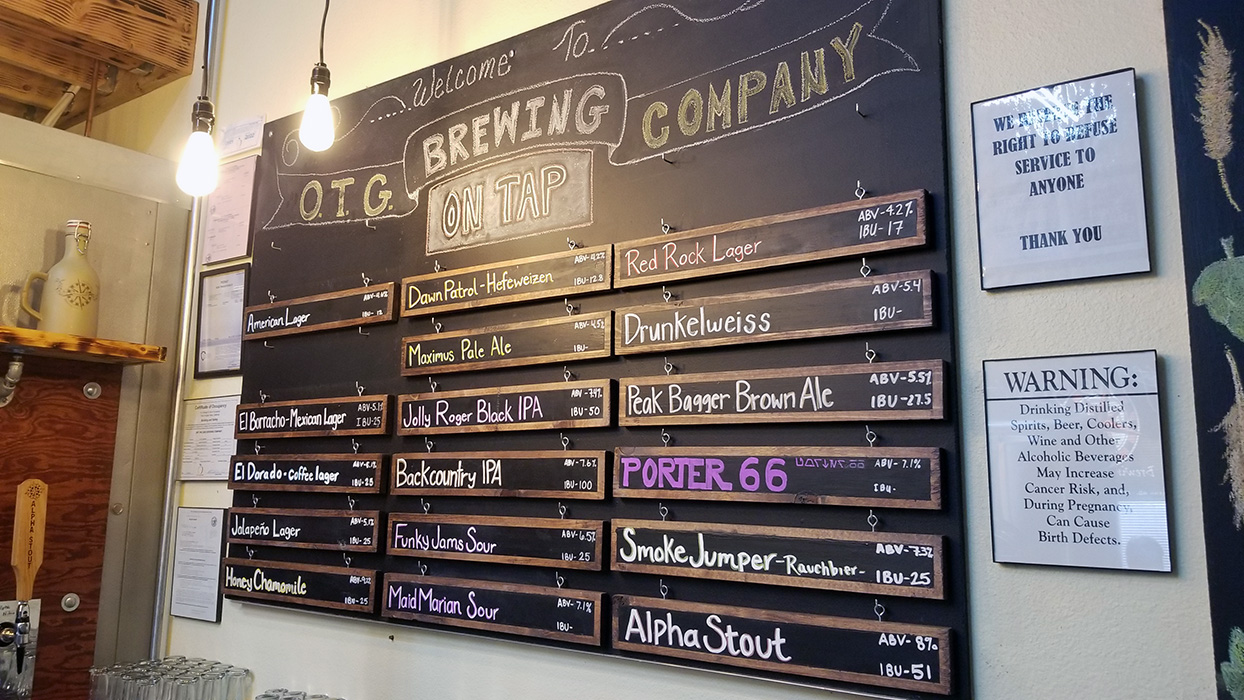 Welcome To
O.T.G. BREWING COMPANY
ON TAP
American Lager
IBU- 12
El Borracho-Mexican Lager
ABV-5.1%
IBU-25
El Dorado-coffee lager
IBU-25
Jalapeño Lager
ABV-5.1%
IBU-25
Honey Chamomile
IBU-25
Dawn Patrol-Hefeweizen
ABV-4.2%
IBU-12.8
Maximus Pale Ale
ABV-4.5%
IBU-
Jolly Roger Black IPA
ABV-7.4%
IBU-50
Backcountry IPA
ABV-7.6%
IBU-100
Funky Jams Sour
ABV-6.5%
IBU-25
Maid Marian Sour
ABV-7.1%
IBU-
Red Rock Lager
ABV-4.2%
IBU-17
Drunkelweiss
ABV-5.4
IBU-
Peak Bagger Brown Ale
ABV-5.5%
IBU-27.5
PORTER 66
ABV-7.1%
IBU-
Smoke Jumper-Rauchbier-
ABV-7.3%
IBU-25
Alpha Stout
ABV-8%
IBU-51
WE RESERVE THE
RIGHT TO REFUSE
SERVICE TO
ANYONE
THANK YOU
WARNING:
Drinking Distilled
Spirits, Beer, Coolers,
Wine and Other
Alcoholic Beverages
May Increase
Cancer Risk, and,
During Pregnancy,
Can Cause
Birth Defects.
Certificate of Occupancy
ALPHA STOUT